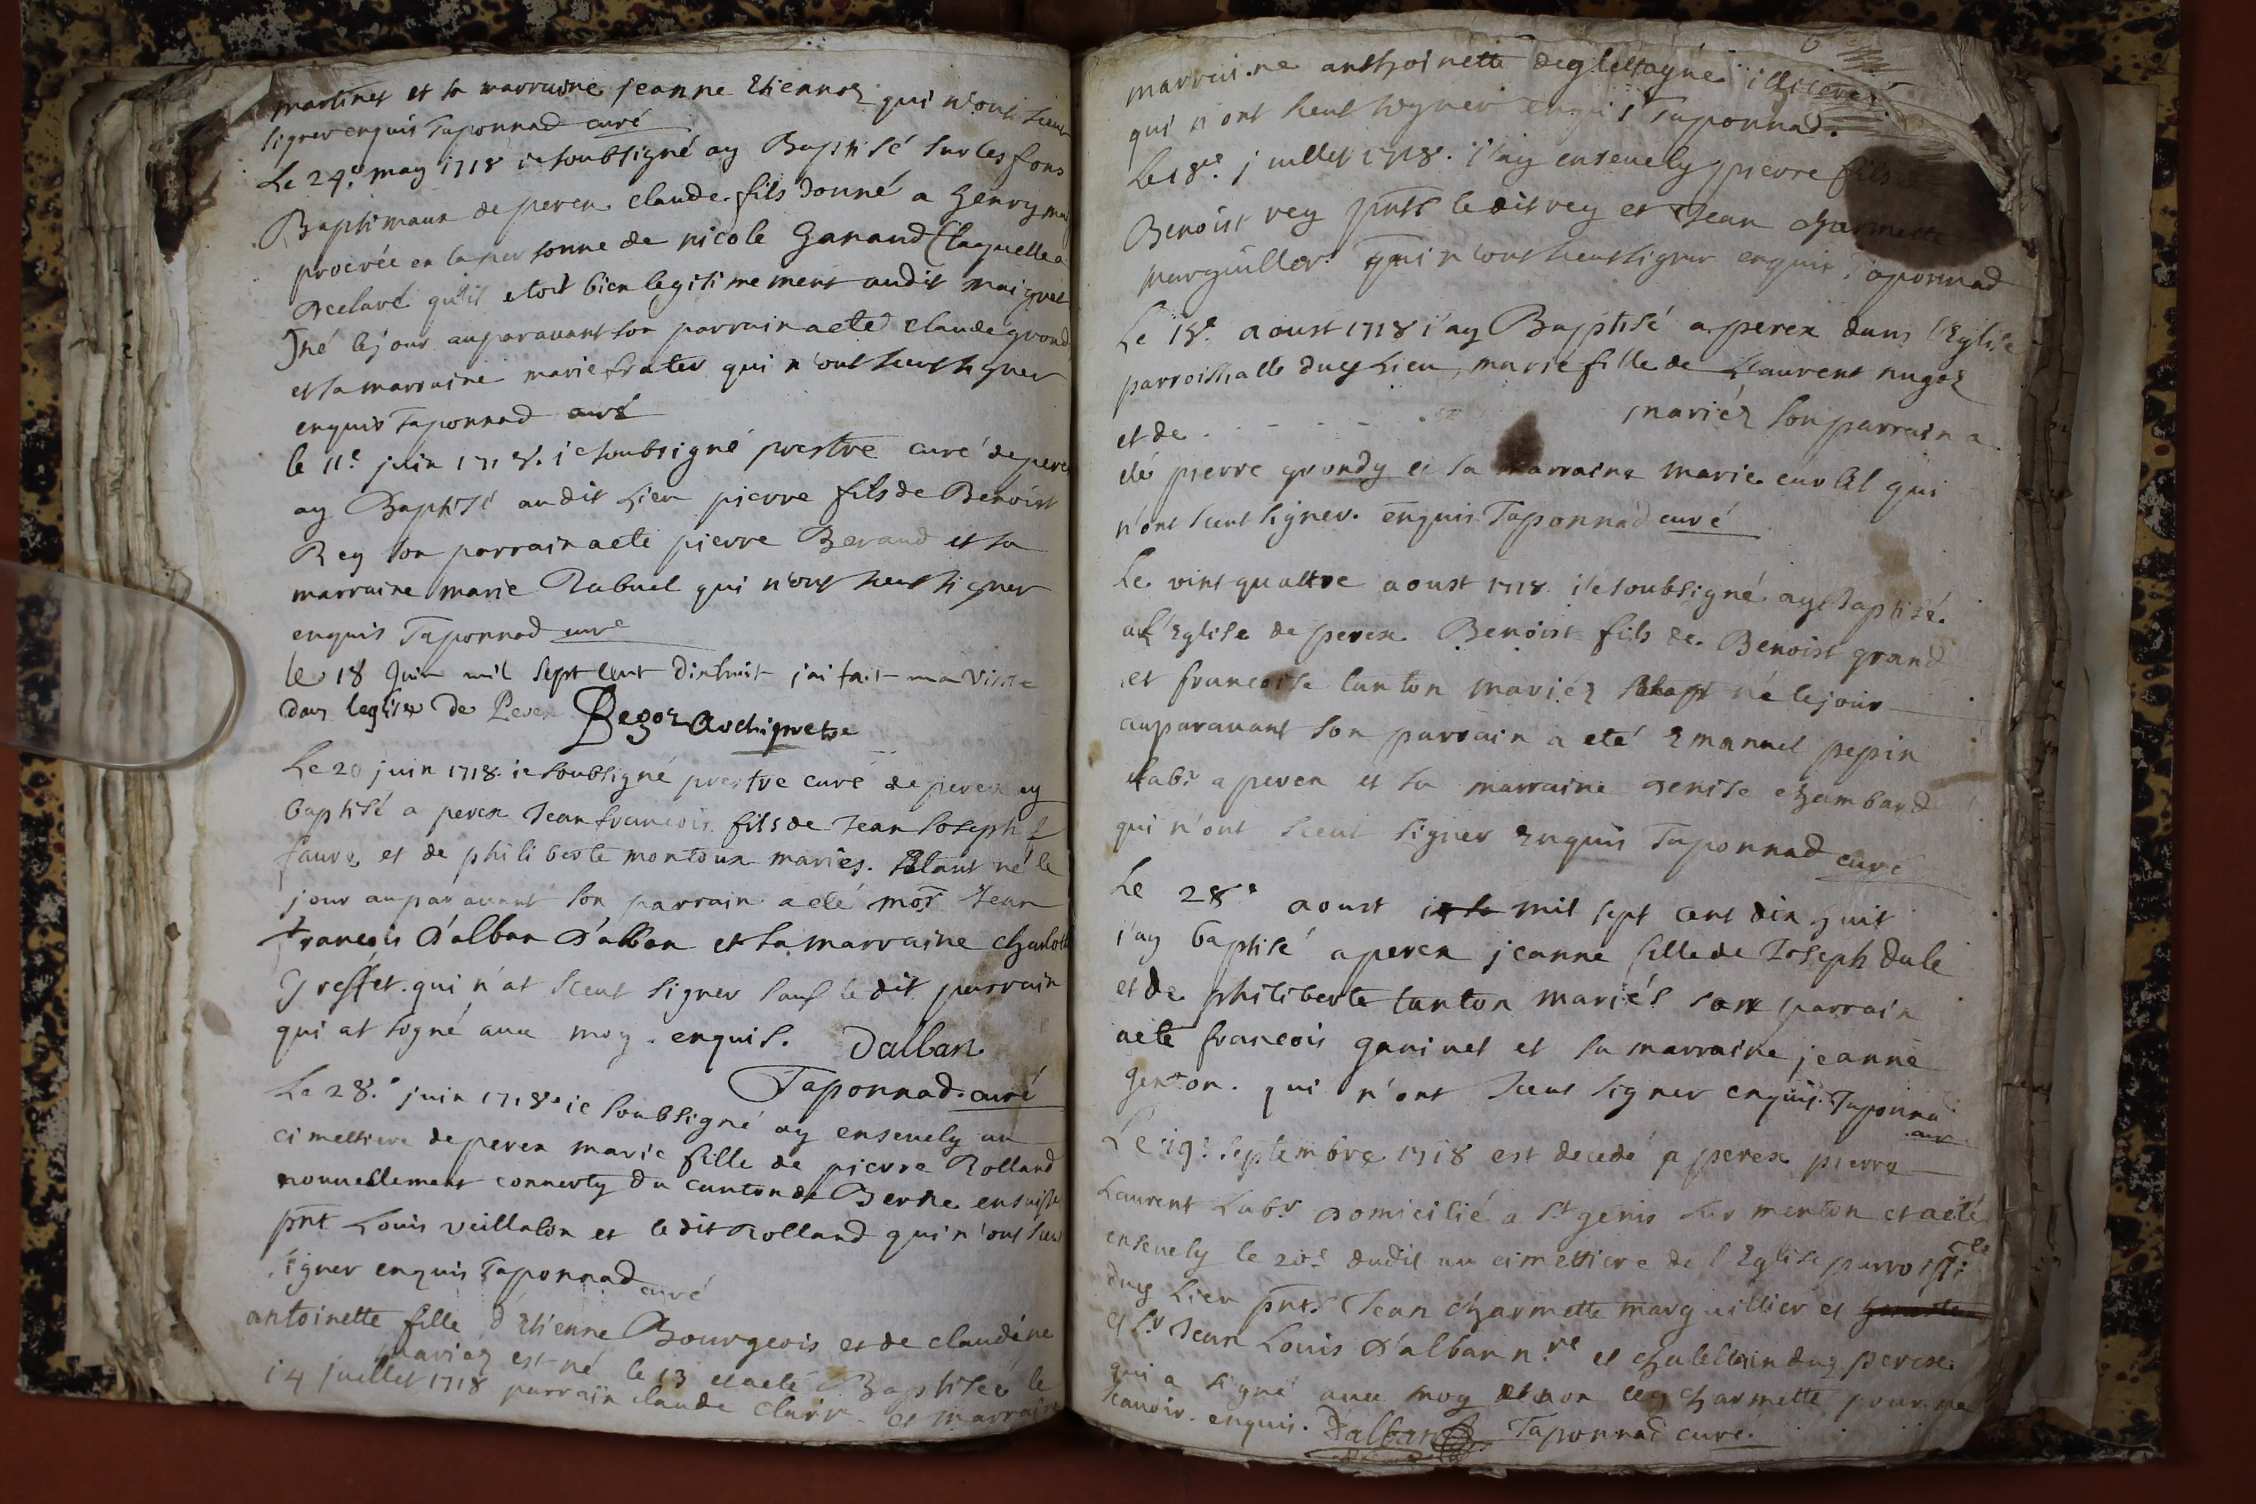 martinet et sa marraine jeanne Etiennoz qui n'ont sceut
signer enquis Taponnad curé
Le 24e. may 1718 ie soubsigné ay Baptisé sur les fons
Baptimaux de perex claude fils donné a henry
procrée en la personne de nicole Ganand (laquelle a
declaré qu'il etoit bien legitimement audit maignet
) né le jour auparavant son parrain a eté claude grond
et sa marraine marie frater qui n'ont sceut signer
enquis Taponnad curé
le 11e. juin 1718. ie soubsigné prestre curé de perex
ay Baptisé audit Lieu pierre fils de Benoist
Rey son parrain a eté pierre Beraud et sa
marraine marie Rabuel qui n'ont sceut signer
enquis Taponnad curé
le 18 Juin mil sept cent dixhuit j'ai fait ma visite
dans leglise de Perex Begoz Archipretre
Le 20 juin 1718. ie soubsigné prestre curé de perex ay
baptisé a perex Jean francois fils de Jean Joseph
faure et de philiberte montoux mariés. Etant né le
jour auparavant son parrain a eté mosr Jean
francois D'alban D'alban et sa marraine charlotte
greffet. qui n'at sceut signer sauf le dit parrain
qui at signé avec moy. enquis. Dalban
Taponnad. curé
Le 28.e juin 1718. ie soubsigné ay ensevely au
cimettiere de perex marie fille de pierre Rolland
nouvellement converty du canton de Berne en suisse
pnt Louis veillalon et le dit Rolland qui n'ont sceu
signer enquis Taponnad curé
antoinette fille d'Etienne Bourgeois et de claudine
mariez est né le 13 et a eté Baptisée le
14 juillet 1718 parrain claude clair et marraine
marraine anthoinette
qui n'ont sceut signer enquis Taponnad.
Le 18e. juillet 1718. j'ay ensevely pierre fils
Benoist rey pnts le dit rey et Jean charmette
marguiller qui n'ont sceut signer enquis. Taponnad
Le 15e. aoust 1718 i'ay Baptisé a perex dans l'Eglise
parroissialle duq Lieu, marie fille de Laurent nugoz
et de . - - - - mariéz son parrain a
eté pierre grondy et sa marraine marie curtil qui
n'ont sceut signer. enquis Taponnad curé
Le vint quattre aoust 1718 ie soubsigné ay baptisé.
a l'Eglise de perex Benoist fils de Benoist grand
et francoise tanton mariéz né le jour
auparavant son parrain a eté Emanuel pepin
Labr a perex et sa marraine denise chambard
qui n'ont sceut signer Enquis Taponnad curé
Le 28e aoust mil sept cent dix huit
i'ay baptisé a perex jeanne fille de Joseph dule
et de philiberte tanton mariés son parrain
a eté francois ganinet et sa marraine jeanne
genton. qui n'ont sceut signer enquis. Taponnad
cur
Le 19e. septembre 1718 est decedé a perex pierre
Laurent Labr domicilié a St genis sur menton et a eté
ensevely le 20e dudit au cimettiere de l'Eglise parroissiale
duq Lieu pnts Jean charmette marguillier et
et Sr Jean Louis D'alban n.re et chatellain duq perex
qui a signé avec moy et non led charmette pour ne
scavoir. enquis. Dalban Taponnad curé.